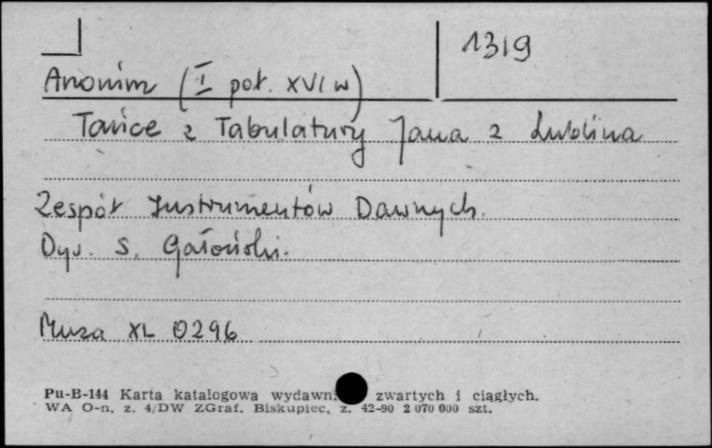 1319
Anonim (I poł. XVI w)
Tańce z Tabulatury Jana z Lublina
Zespół Instrumentów Dawnych.
Dyr. S. Gałoński.
Muza XL 0296
Pu-B-144 Karta katalogowa wydawn. zwartych i ciągłych.
WA O-n, z. 4/DW ZGraf. Biskupiec, z. 42-90 2 070 000 szt.